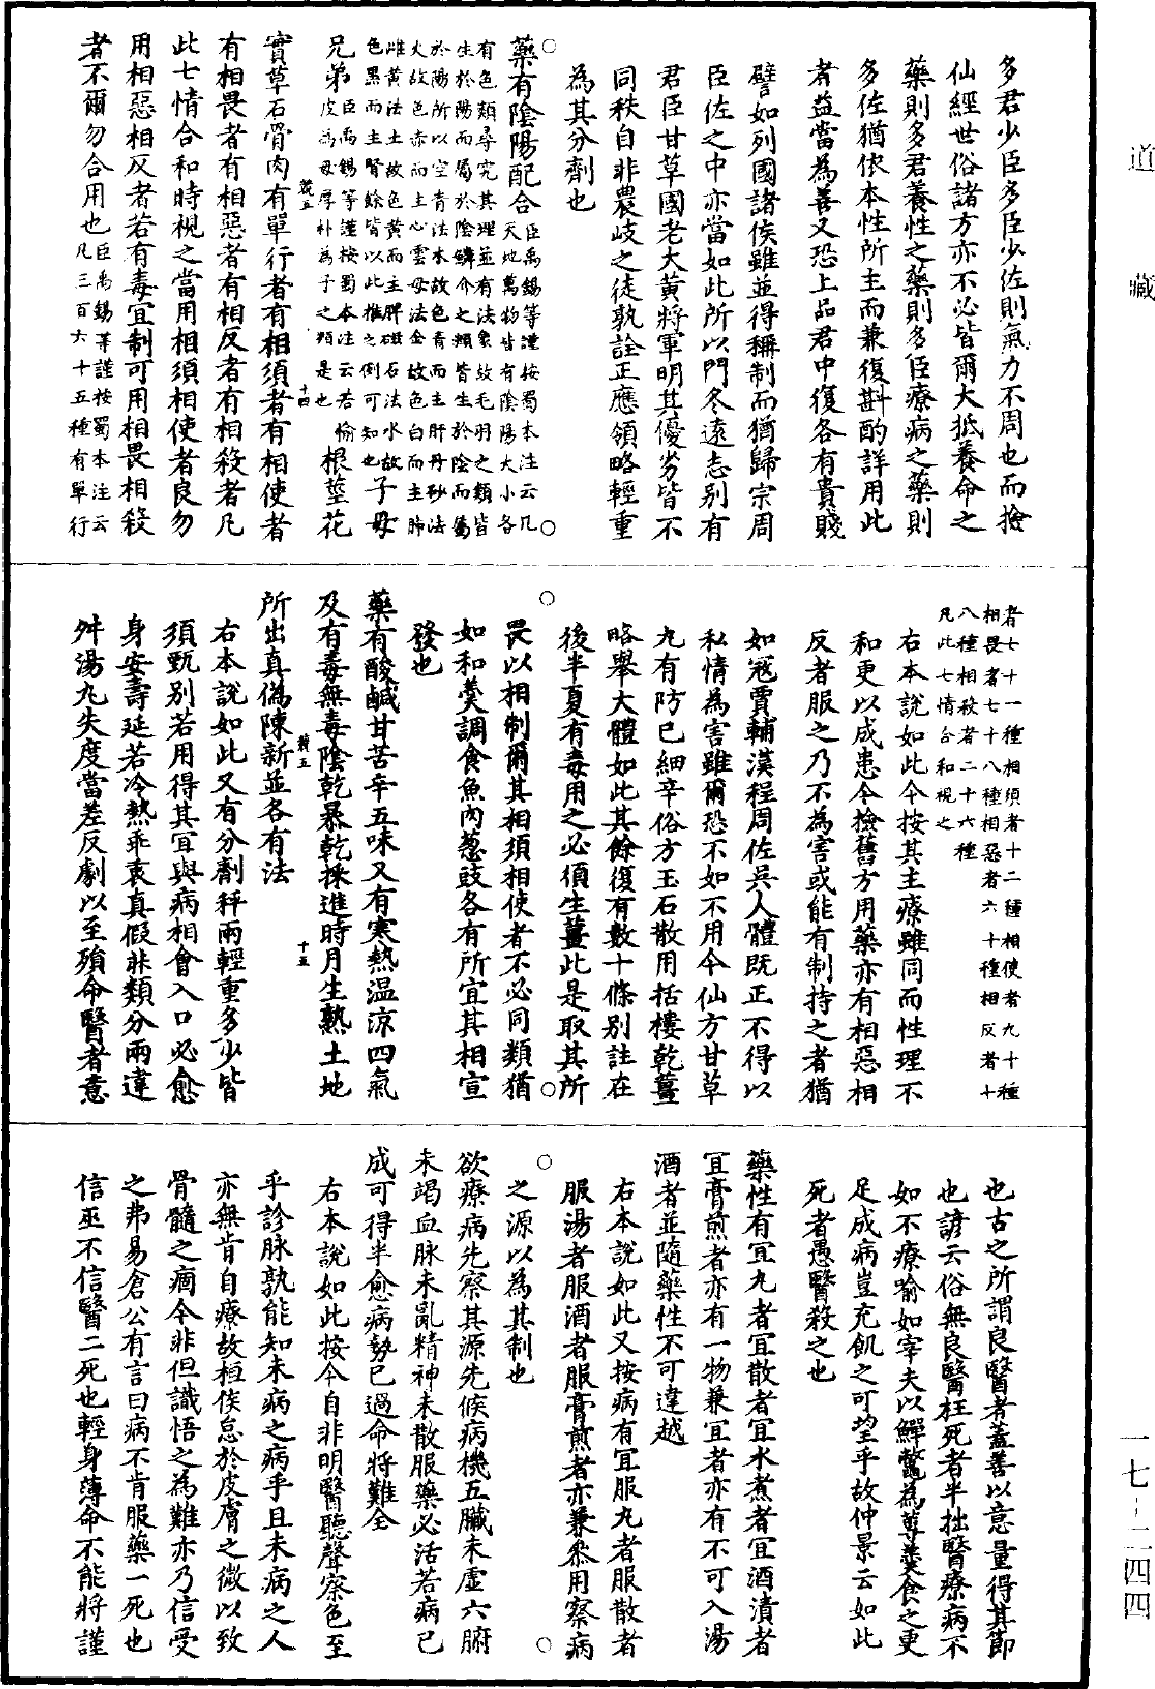 道藏
多君少臣多臣少佐則氣力不周也而撿
仙經世俗諸方亦不必皆爾大抵養命之
藥則多君養性之藥則多臣療病之藥則
多佐猶依本性所主而兼復斟酌詳用此
者益當為善又恐上品君中復各有貴賤
譬如列國諸侯雖並得稱制而猶歸宗周
臣佐之中亦當如此所以門冬遠志别有
君臣甘草國老大黄將軍明其優劣皆不
同秩自非農岐之徒孰詮正應領略輕重
為其分劑也
○藥有陰陽配合臣禹錫等謹按蜀本注云凡○
天地萬物皆有陰陽大小各
有色類尋究其理並有法象故毛羽之類皆
生於陽而屬於陰鱗介之類皆生於陰而屬
於陽所以空青法木故色青而主肝丹砂法
火故色赤而主心雲母法金故色白而主肺
雌黄法土故色黄而主脾磁石法水故
色黑而主腎餘皆以此推之例可知也子母
兄弟臣禹錫等謹按蜀本注云若榆
皮為母厚朴為子之類是也根莖花
號五 十四
實草石骨肉有單行者有相須者有相使者
有相畏者有相惡者有相反者有相殺者凡
此七情合和時視之當用相須相使者良勿
用相惡相反者若有毒宜制可用相畏相殺
者不爾勿合用也臣禹錫等謹按蜀本注云
凡三百六十五種有單行
者七十一種相須者十二種相使者九十種
相畏者七十八種相惡者六十種相反者十
八種相殺者三十六種
凡此七情合和視之
右本說如此今按其主療雖同而性理不
和更以成患今撿舊方用藥亦有相惡相
反者服之乃不為害或能有制持之者猶
如寇賈輔漢程周佐吳人體既正不得以
私情為害雖爾恐不如不用今仙方甘草
丸有防已細辛俗方玉石散用括樓乾薑
略舉大體如此其餘復有數十條别註在
後半夏有毒用之必須生薑此是取其所
○畏以相制爾其相須相使者不必同類猶○
如和羹調食魚肉葱豉各有所宜其相宣
發也
藥有酸鹹甘苦辛五味又有寒熱温凉四氣
及有毒無毒陰乾暴乾採造時月生熟土地
號五 十五
所出真偽陳新並各有法
右本說如此又有分劑秤兩輕重多少皆
須甄别若用得其宜與病相會入口必愈
身安壽延若冷熱乖衷真假非類分兩違
舛湯丸失度當差反劇以至殞命醫者意
也古之所謂良醫者蓋善以意量得其節
也諺云俗無良醫枉死者半拙醫療病不
如不療喻如宰夫以鱓鼈為蓴羹食之更
足成病豈充飢之可望乎故仲景云如此
死者愚醫殺之也
藥性有宜丸者宜散者宜水煮者宜酒漬者
宜膏煎者亦有一物兼宜者亦有不可入湯
酒者並隨藥性不可違越
右本說如此又按病有宜服丸者服散者
服湯者服酒者服膏煎者亦兼㕘用察病
○之源以為其制也○
欲療病先察其源先候病機五臟未虚六腑
未竭血脉未亂精神未散服藥必活若病已
成可得半愈病勢已過命將難全
右本說如此按今自非明醫聽聲察色至
乎診脉孰能知未病之病乎且未病之人
亦無肯自療故桓侯怠於皮膚之微以致
骨髓之痼今非但識悟之為難亦乃信受
之弗易倉公有言曰病不肯服藥一死也
信巫不信醫二死也輕身薄命不能將謹
一七－二四四